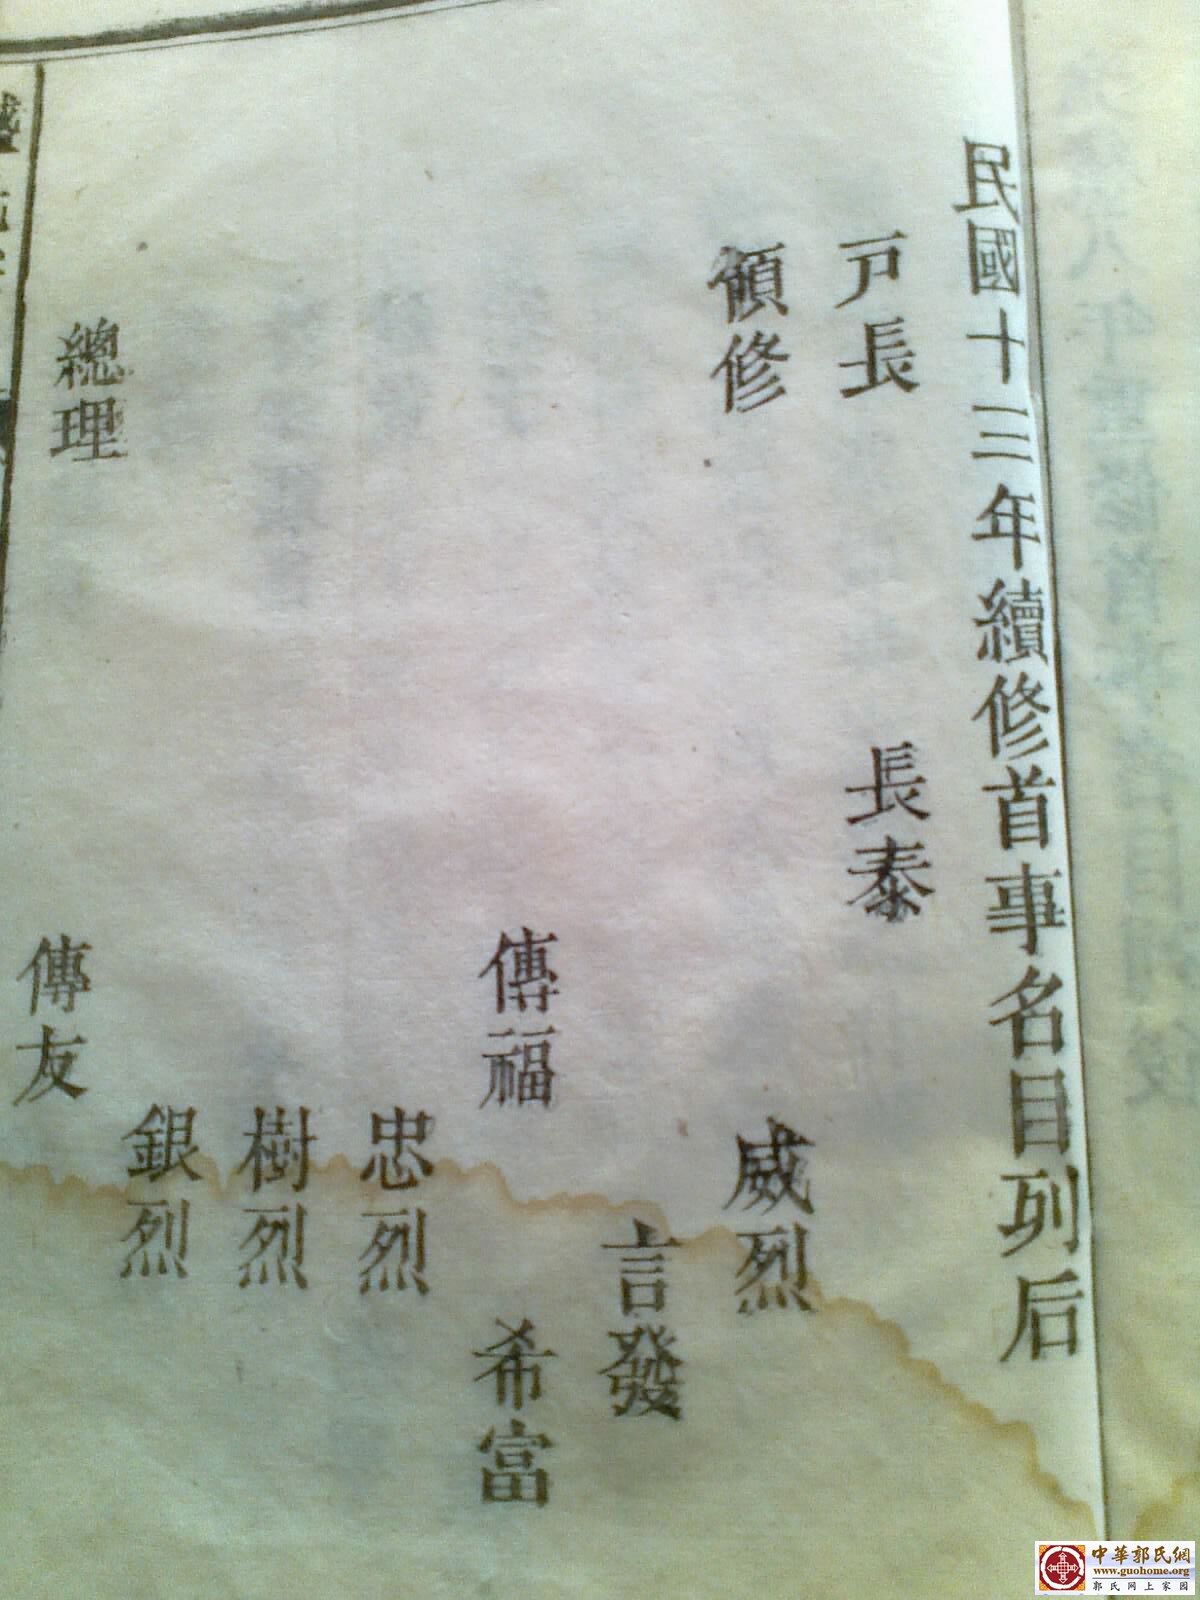 民國十三年續修首事名目列后
戸長 長泰
領修 威烈
言發
傳福 希富
忠烈
樹烈
銀烈
總理 傳友
中華郭氏網
www.guohome.org
郭氏网上家园